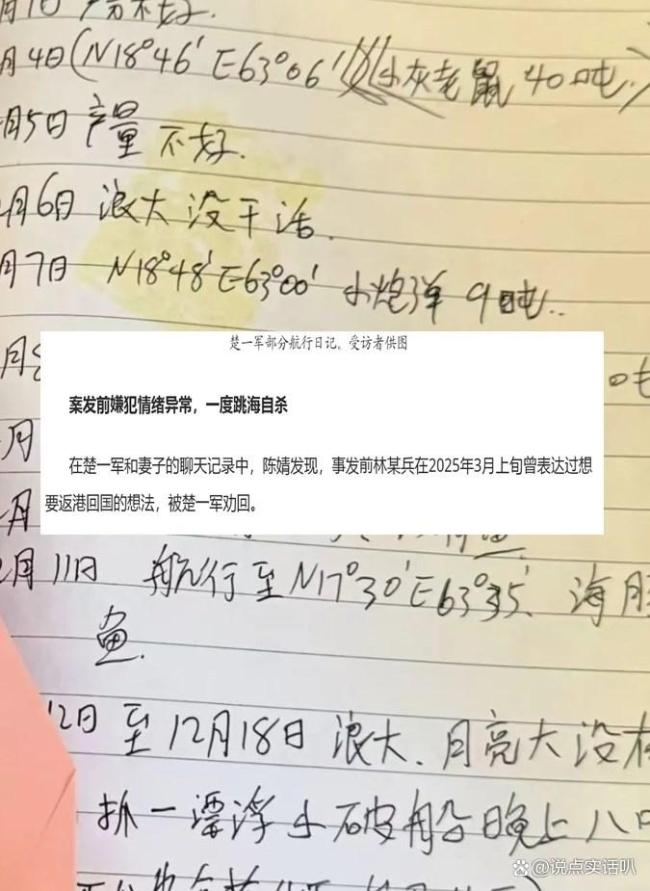 月1日 产量不好.
月4日(N18°46′ E63°06′ 小灰老鼠 40吨.)
月5日 产量 不好.
月6日 浪大 没干活.
月7日 N18°48′ E63°00′ 小炮弹 9吨..
楚一军部分航行日记。受访者供图
月
吨
案发前嫌犯情绪异常，一度跳海自杀
月
在楚一军和妻子的聊天记录中，陈婧发现，事发前林某兵在2025年3月上旬曾表达过想
要返港回国的想法，被楚一军劝回。
月
月11日 航行至N17°30′E63°35′、海
鱼.
12日 至12月18日 浪大、月亮大没
抓一漂浮小破船晚上八
@说点实话叭